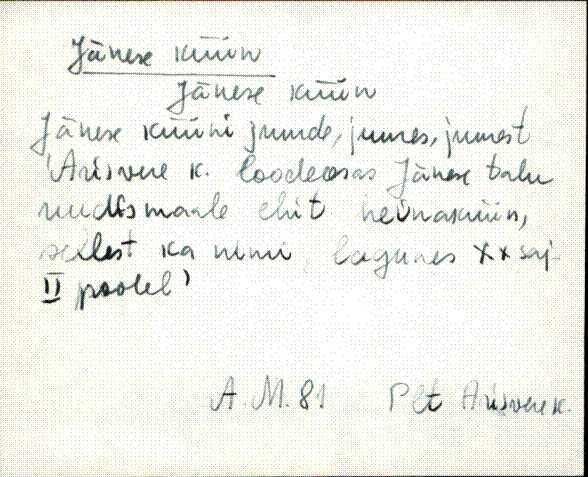 Jänese küün
Jänese küün
Jänese küüni juurde, juures, juurest
'Arisvere k. loodeosas Jänese talu
uudismaale ehit heinaküün,
sellest ka nimi, lagunes XX saj.
II poolel'
A.M. 81 Plt Arisvere k.